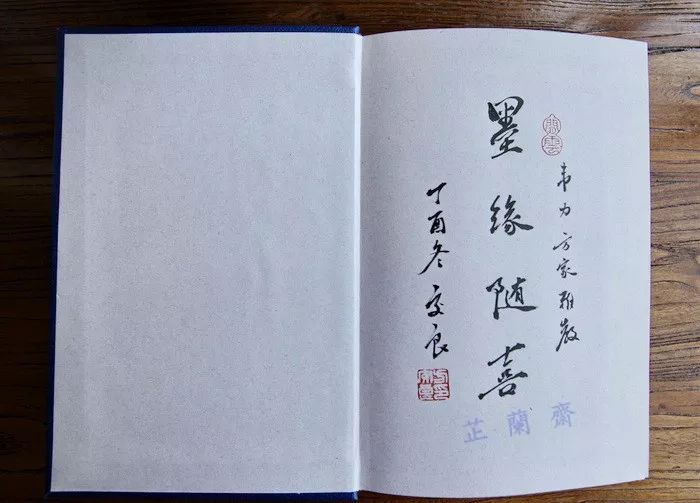 韦力方家雅教
墨缘随喜
丁酉冬
芷蘭齋